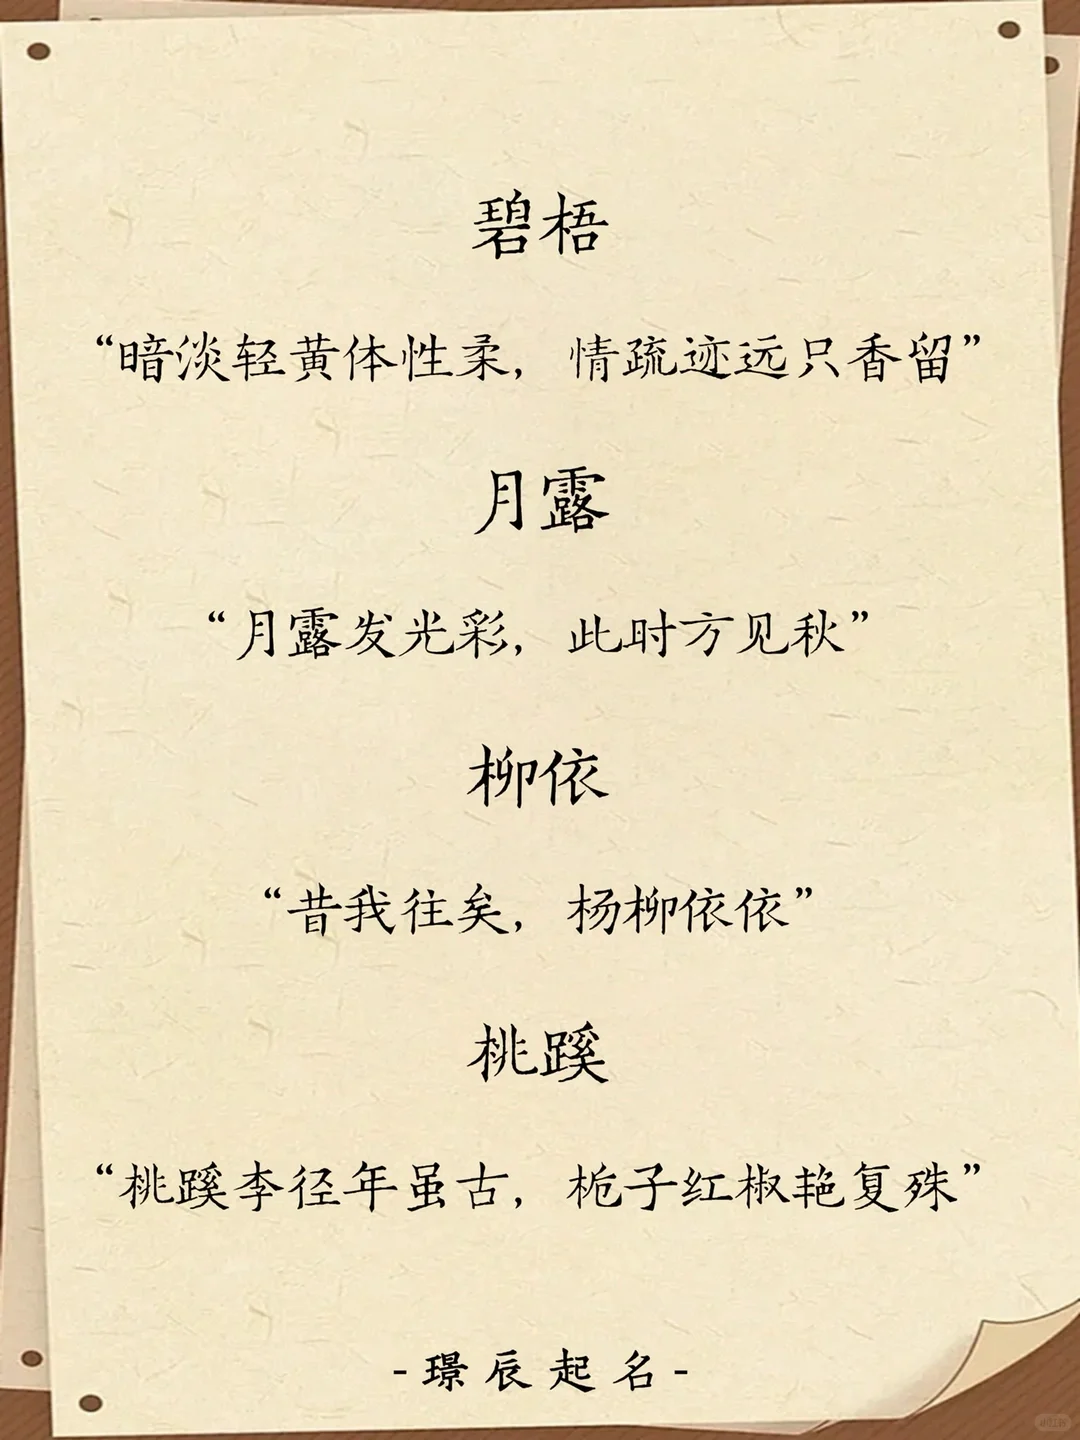 碧梧
“暗淡轻黄体性柔，情疏迹远只香留”
月露
“月露发光彩，此时方见秋”
柳依
“昔我往矣，杨柳依依”
桃蹊
“桃蹊李径年虽古，栀子红椒艳复殊”
-璟辰起名-